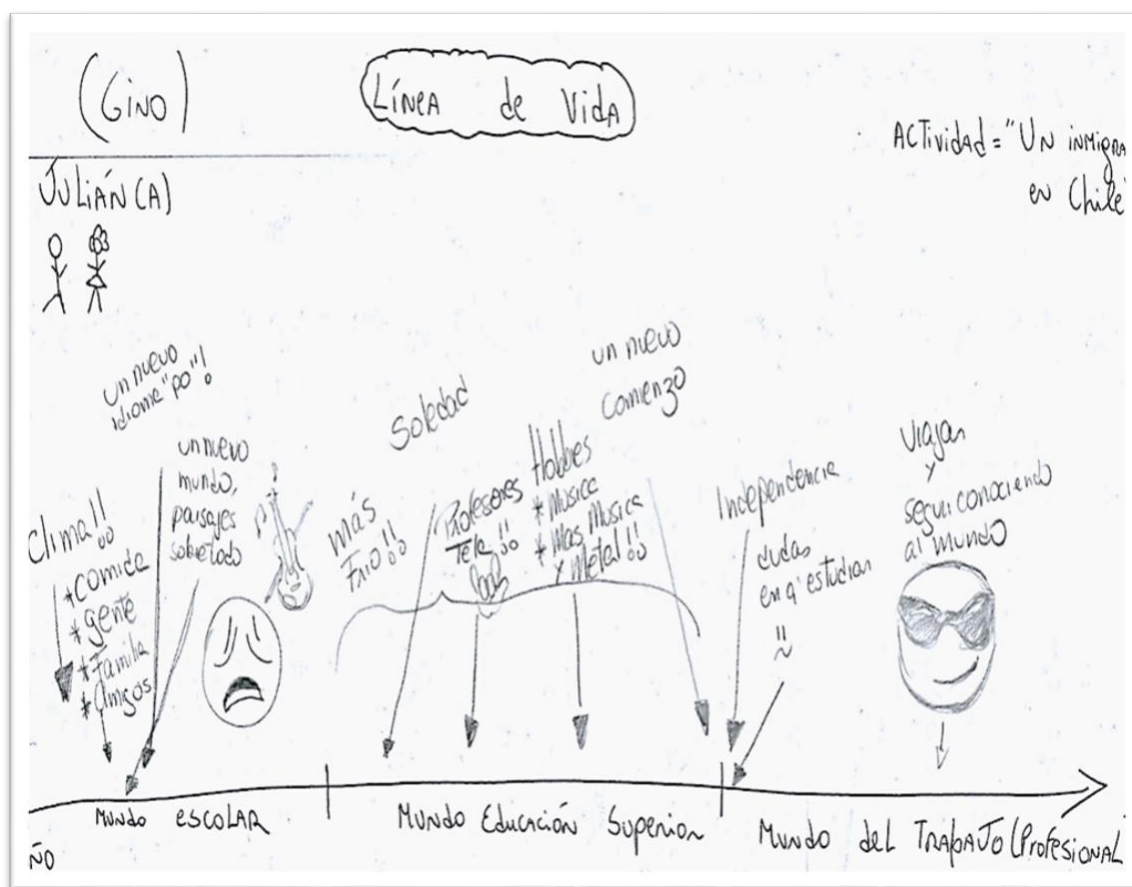 (GINO)
LÍNEA de VidA
ACTividAd = "UN iNMigra
en Chile"
JULIÁN (A)
un nuevo
idioma "po"!
un nuevo
mundo,
paisajes
sobretodo
Clima!!
*Comida
*gente
*Familia
*Amigos
Más
Frio!!
Soledad
Profesores
Tela!!
Hobbies
*Musica
*Mas Musica
y Metal!!
un nuevo
comienzo
Independencia
dudas
en q' estudiar
Viajar
y
seguir conociendo
al mundo
Mundo escolar
Mundo Educación Superior
Mundo del TRABAJO (Profesional
ÑO